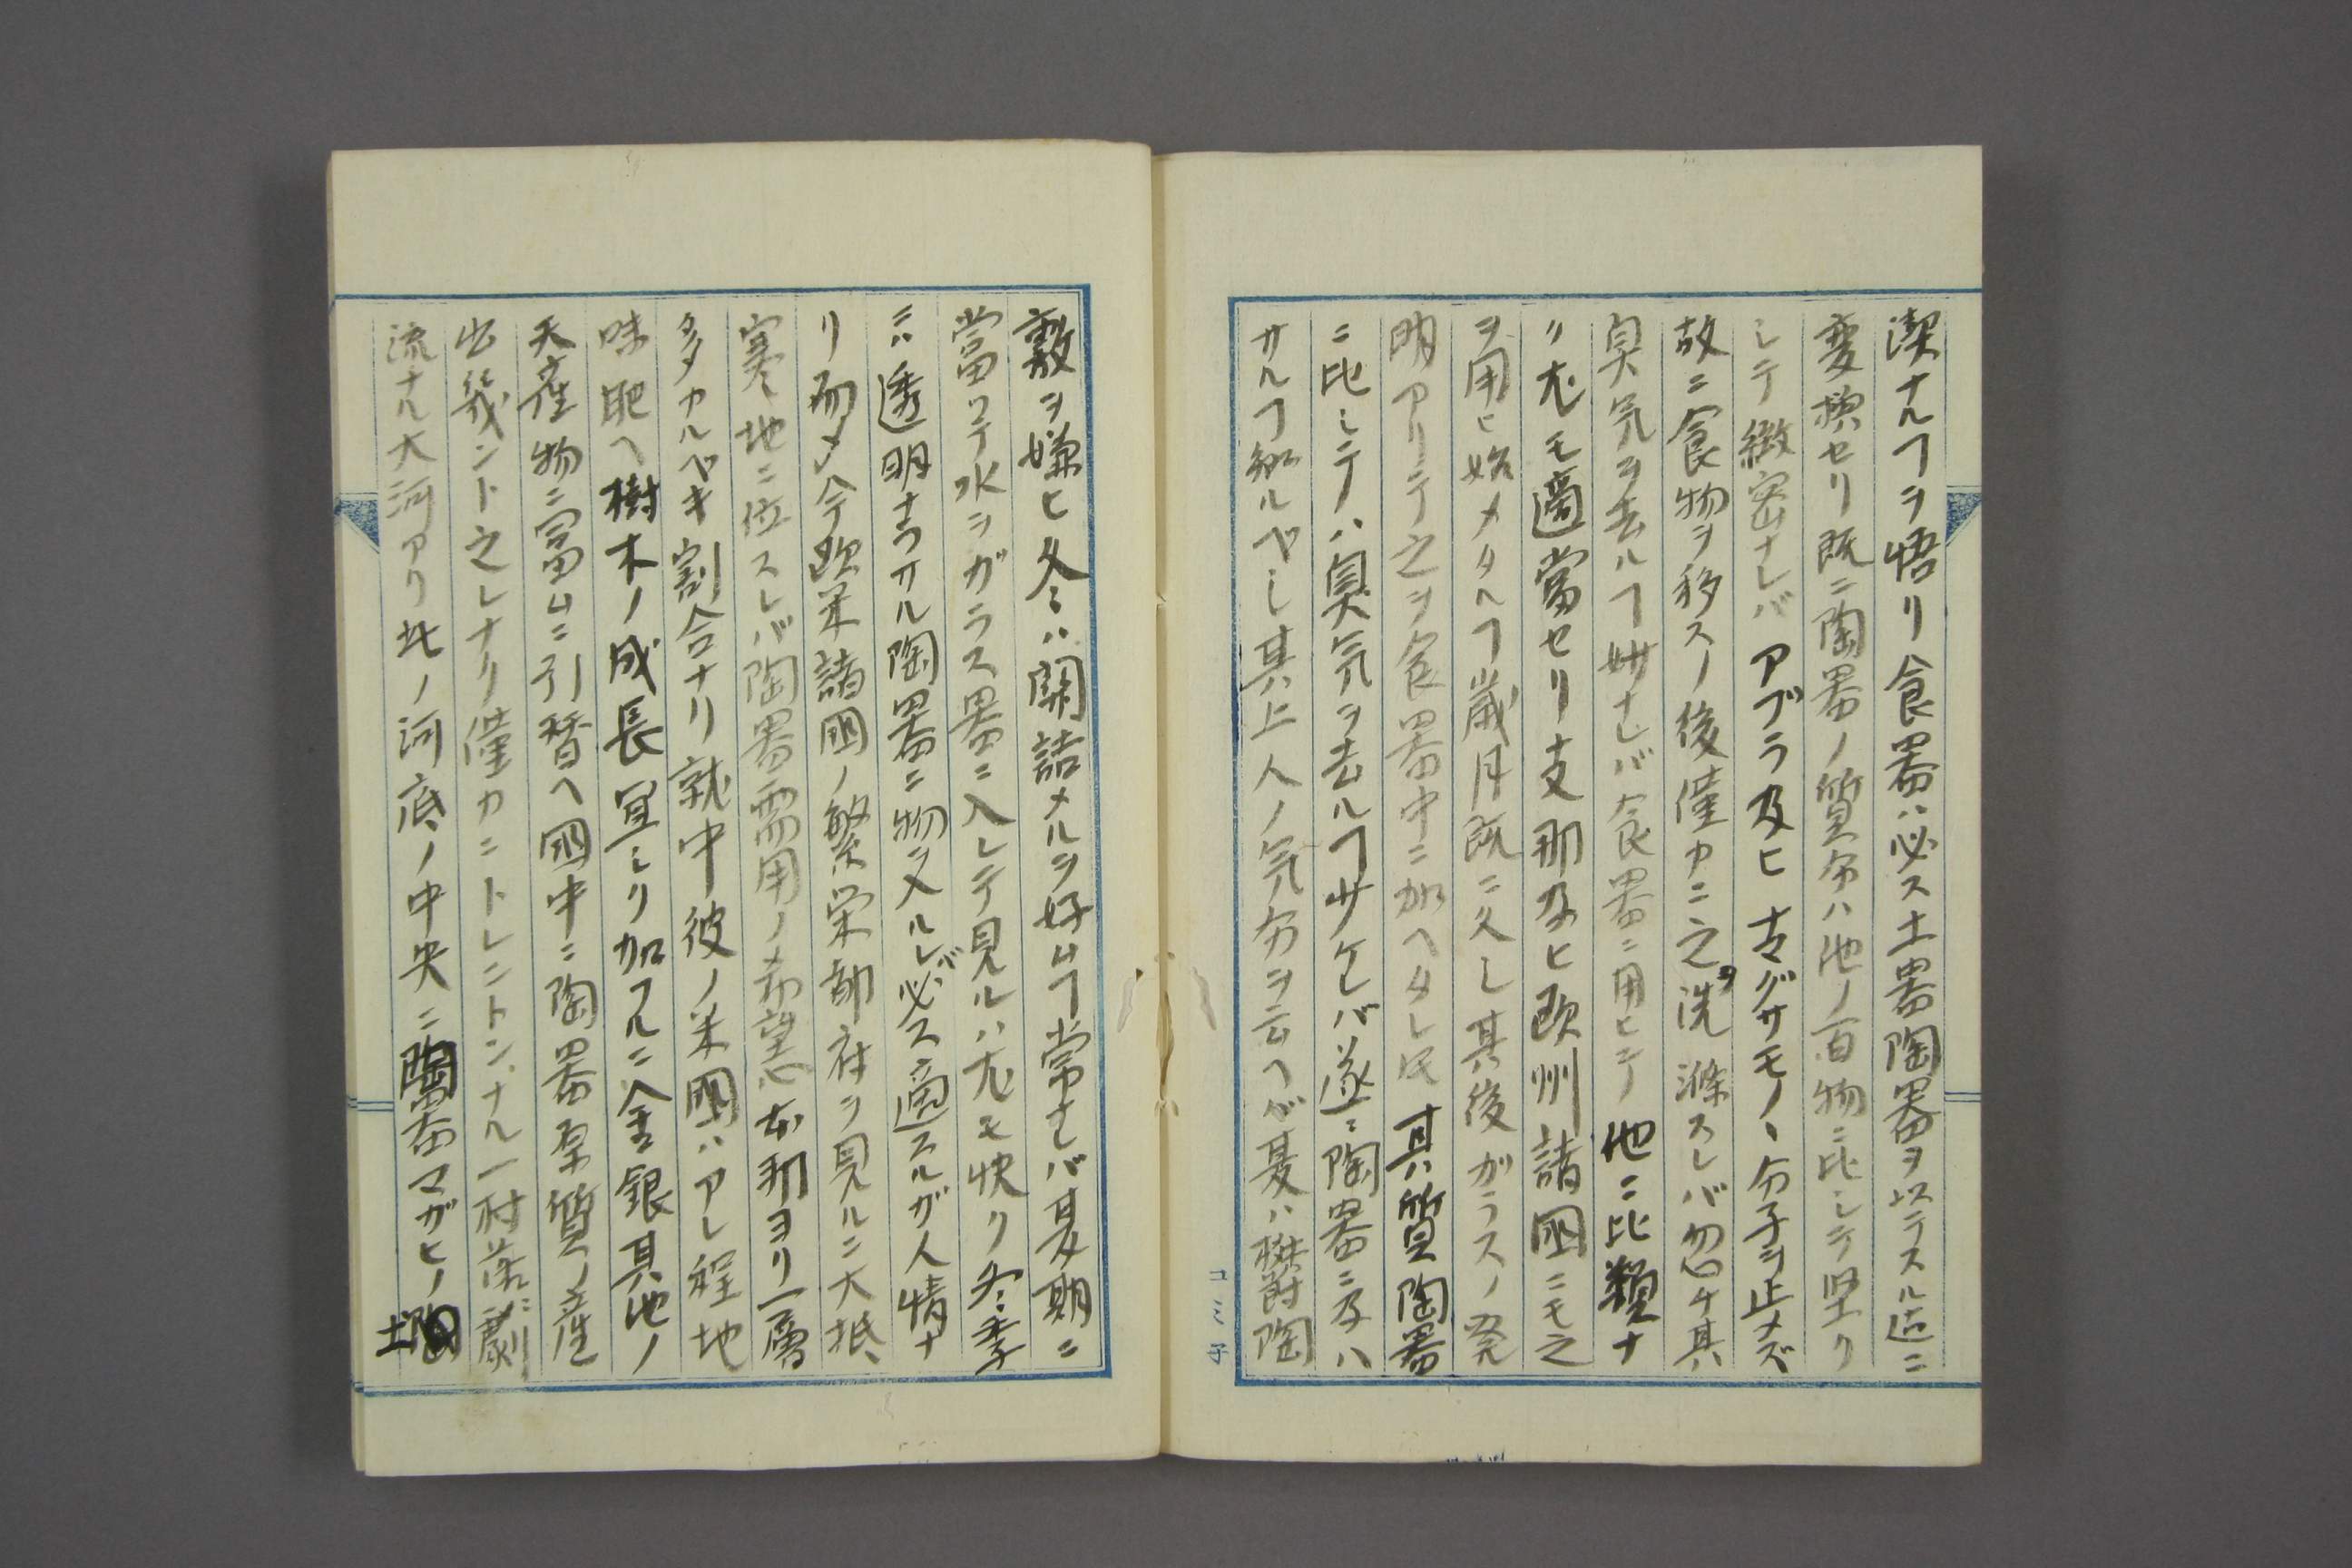 潔ナルヿヲ悟リ食器ハ必ス土器陶器ヲ以テスル迄ニ
変換セリ既ニ陶器ノ質分ハ他ノ百物ニ比シテ堅ク
シテ緻密ナレバアブラ及ヒ古グサモノヽ分子ヲ止メズ
故ニ食物ヲ移スノ後僅カニ之ヲ洗滌スレバ忽チ其
臭気ヲ去ルヿ妙ナレバ食器ニ用ヒテ他ニ比類ナ
リ尤モ適當セリ支那及ヒ欧州諸國ニモ之
ヲ用ヒ始メタルヿ歳月既ニ久シ其後ガラスノ発
明アリテ之ヲ食器中ニ加ヘタレ𪜈其質陶器
ニ比シテハ臭気ヲ去ルヿ少ケレバ遂ニ陶器ニ及ハ
サルヿ知ルベシ其上人ノ気分ヲ云ヘバ夏ハ
敷ヲ嫌ヒ冬ハ閉詰メルヲ好ムヿ常ナレバ夏期ニ
當リテ水ヲガラス器ニ入レテ見ルハ尤モ快ク冬季
ニハ透明ナラサル陶器ニ物ヲ入ルレバ必ス適スルガ人情ナ
リ而〆今欧米諸國ノ繁栄都府ヲ見ルニ大抵
寒地ニ位スレバ陶器需用ノ希望本邦ヨリ一層
多カルベキ割合ナリ就中彼ノ米國ハアレ程地
味肥ヘ樹木ノ成長宜シリ加フルニ金銀其他ノ
天産物ニ富ムニ引替ヘ國中ニ陶器原質ノ産
出幾ント之レナク僅カニトレントンナル一村落
流ナル大河アリ此ノ河底ノ中央ニ陶器マガヒノ土
コミ子